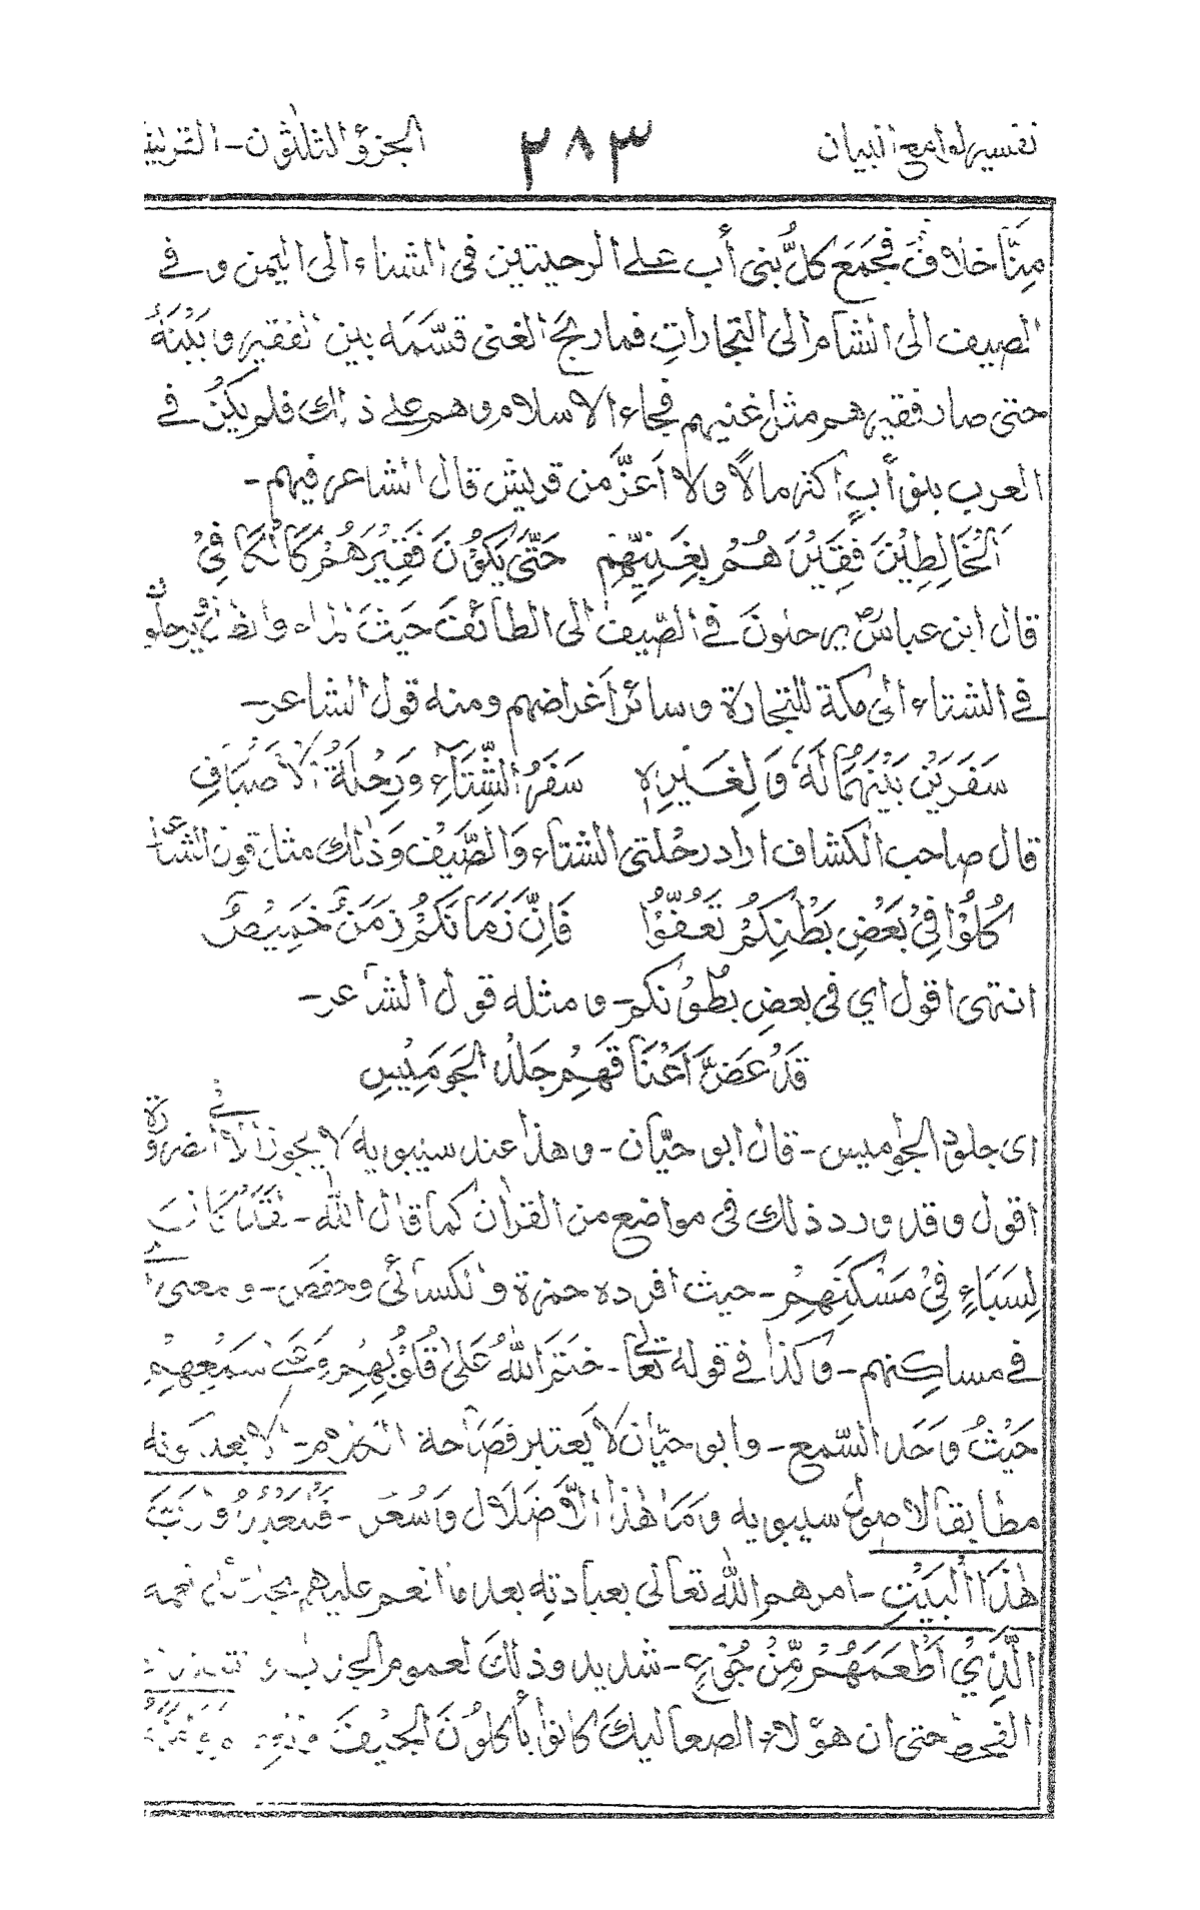 تفسير لوامع البيان ٢٨٣ الجزؤ الثلثون - القريش
مِنَّا خلافَ فجَمَعَ كلُّ بنى أب على الرحيتين فى الشتاء الى اليمن و فى
الصيف الى الشام الى التجاراتِ فما ربحَ الغنى قسَّمَه بين الفقير و بَيْنَهُ
حتى صار فقيرهم مثل غنيهم فجاء الاسلام وهم على ذلك فلم يكنْ فى
العرب بنو أبٍ أكثر مالًا ولا اَعزَّ من قريش قال الشاعر فيهم -
اَلْخَالِطِيْنَ فَقِيْرَ هُمْ بِغَنِيِّهِمْ حَتّٰى يَكُوْنَ فَقِيْرُهُمْ كَالْكَافِيْ
قال ابن عباسؓ يرحلونَ فى الصّيف الى الطائف حيث الماء والظل ويرحلون
فى الشتاء الى مكة للتجارة و سائر اَغراضهم ومنه قول الشاعر -
سَفَرَيْنِ بَيْنَهُمَا لَهٗ وَ لِغَيْرِهٖ سَفَرُ الشِّتَآءِ وَرِحْلَةُ الْاَصْيَافِ
قال صاحب الكشاف اراد رحْلتى الشتاء وَالصَّيْفِ وَذٰلك مثل قول الشاعر
كُلُوْا فِيْ بَعْضِ بَطْنِكُمْ تَعُفُّوْا فَاِنَّ زَمَانَكُمْ زَمَنٌ خَمِيْصٌ
انتهى اقول اي فى بعضِ بطُوْنكم - و مثله قول الشاعر -
قَدْ عَضَّ اَعْنَاقَهُمْ جِلْدُ الْجَوَامِيْسِ
اى جلود الجواميس - قال ابو حيّان - وهذا عند سيبويه لا يجوز الّا فى الضرورة
اقول وقد ورد ذلك فى مواضع من القرٰان كما قال اللّٰه - لَقَدْ كَانَ
لِسَبَاءٍ فِيْ مَسْكَنِهِمْ - حيث افرده حمزة والكسائى وحفص - و معنى
فى مساكنهم - وكذا فى قوله تعالٰى - خَتَمَ اللّٰهُ عَلٰى قُلُوْبِهِمْ وَعَلٰى سَمْعِهِمْ
حَيْثُ وَحَد السّمع - وابو حيّان لا يَعتبر فصَاحة الا بعد كونه
مطابقا لاصول سيبويه وَمَا هٰذا الّا ضَلَال وَسُعُر - فَلْيَعْبُدُوْا رَبَّ
هٰذَا الْبَيْتِ - امر هم اللّٰه تعالى بعبادتِه بعد ما انعم عليهم نعمه
الَّذِيْ اَطْعَمَهُمْ مِّنْ جُوْعٍ - شديد وذلكَ لعموم الجدب
القحط حتى ان هؤلاء الصعاليكَ كانوا يأكلونَ الجِيْفَ